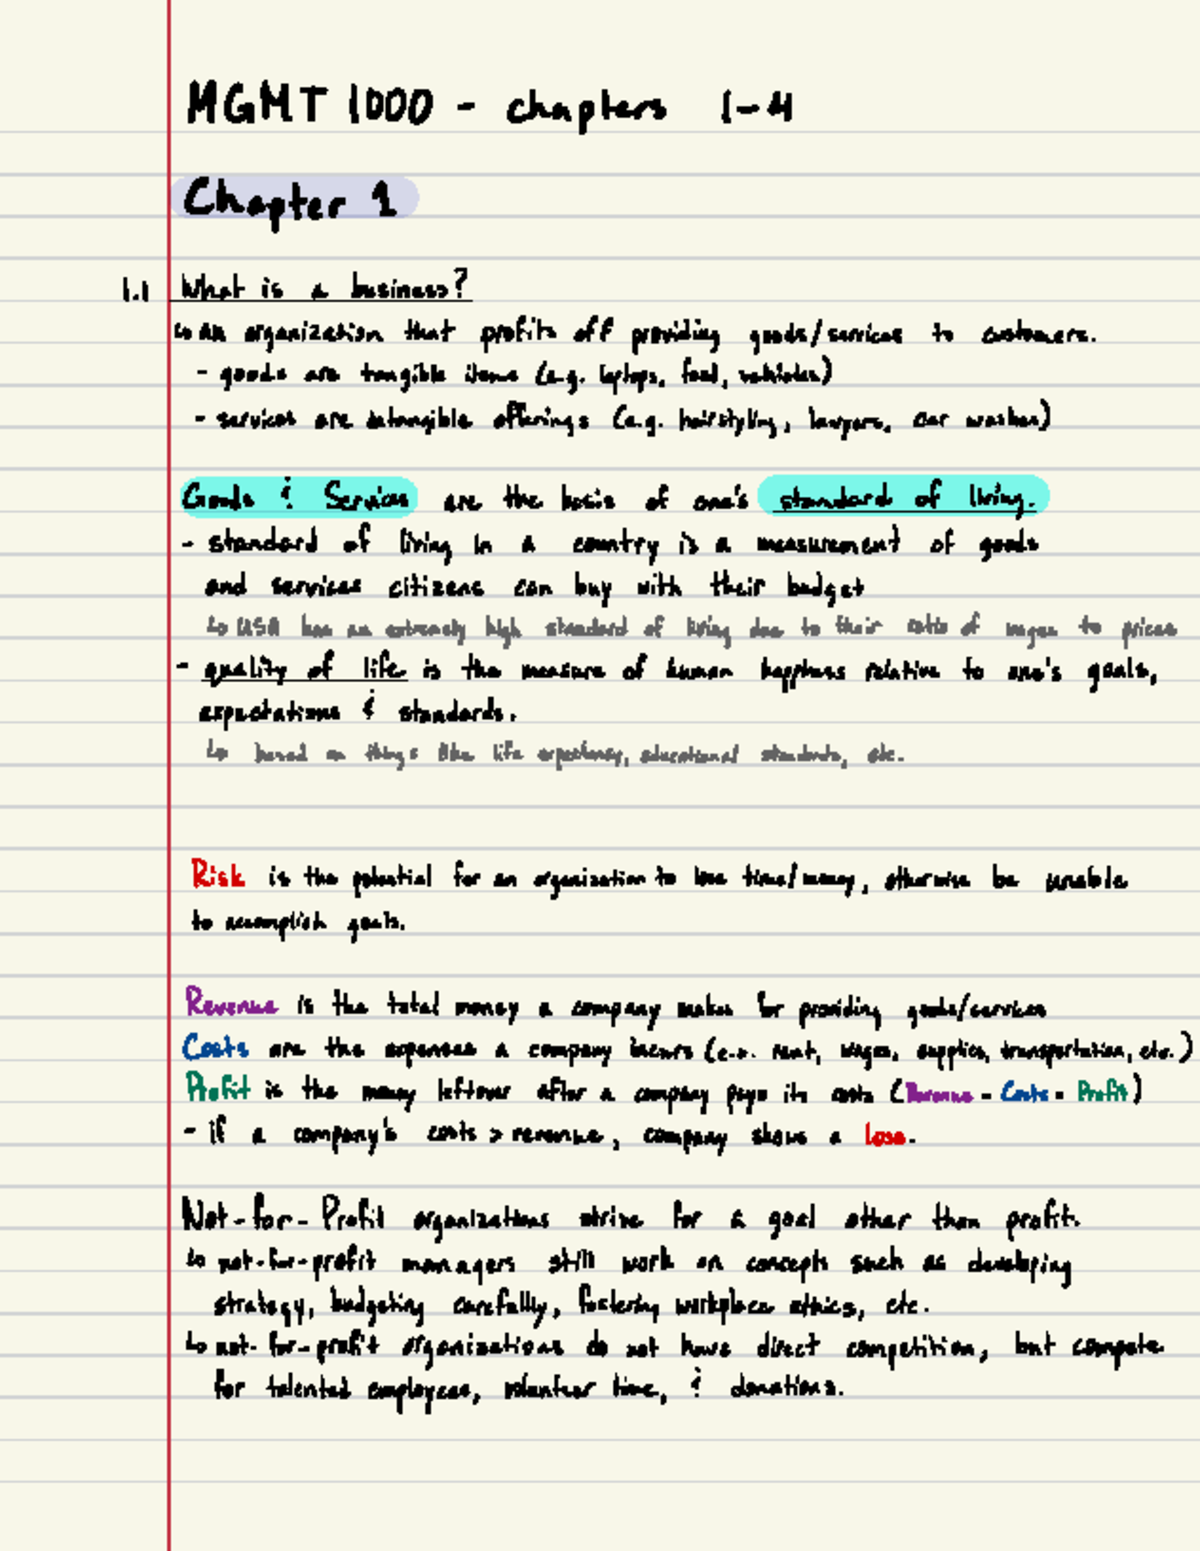 MGMT 1000 - chapters 1-4
Chapter 1
1.1 What is a business?
↳ an organization that profits off providing goods/services to customers.
- goods are tangible items (e.g. laptops, food, vehicles)
- services are intangible offerings (e.g. hairstyling, lawyers, car washes)
Goods & Services are the basis of one's standard of living.
- standard of living in a country is a measurement of goods
and services citizens can buy with their budget
↳ USA has an extremely high standard of living due to their ratio of wages to prices
- quality of life is the measure of human happiness relative to one's goals,
expectations & standards.
↳ based on things like life expectancy, educational standards, etc.
Risk is the potential for an organization to lose time/money, otherwise be unable
to accomplish goals.
Revenue is the total money a company makes for providing goods/services
Costs are the expenses a company incurs (e.x. rent, wages, supplies, transportation, etc.)
Profit is the money leftover after a company pays its costs (Revenue - Costs = Profit)
- if a company's costs > revenue, company shows a loss.
Not-for-Profit organizations strive for a goal other than profit.
↳ not-for-profit managers still work on concepts such as developing
strategy, budgeting carefully, fostering workplace ethics, etc.
↳ not-for-profit organizations do not have direct competition, but compete
for talented employees, volunteer time, & donations.